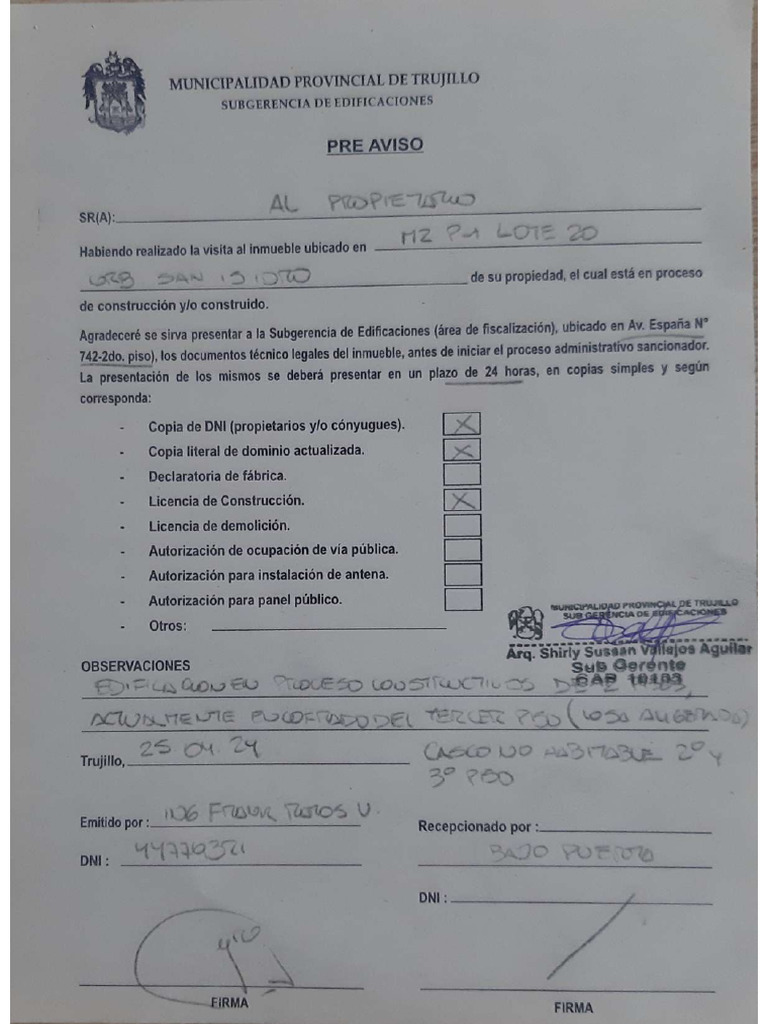 MUNICIPALIDAD PROVINCIAL DE TRUJILLO
SUBGERENCIA DE EDIFICACIONES
PRE AVISO
SR(A): AL PROPIETARIO
Habiendo realizado la visita al inmueble ubicado en MZ P-1 LOTE 20
URB SAN ISIDRO de su propiedad, el cual está en proceso
de construcción y/o construido.
Agradeceré se sirva presentar a la Subgerencia de Edificaciones (área de fiscalización), ubicado en Av. España N°
742-2do. piso), los documentos técnico legales del inmueble, antes de iniciar el proceso administrativo sancionador.
La presentación de los mismos se deberá presentar en un plazo de 24 horas, en copias simples y según
corresponda:
- Copia de DNI (propietarios y/o cónyugues). X
- Copia literal de dominio actualizada. X
- Declaratoria de fábrica.
- Licencia de Construcción. X
- Licencia de demolición.
- Autorización de ocupación de vía pública.
- Autorización para instalación de antena.
- Autorización para panel público.
- Otros:
MUNICIPALIDAD PROVINCIAL DE TRUJILLO
SUB GERENCIA DE EDIFICACIONES
Arq. Shirly Sussan Vallejos Aguilar
Sub Gerente
CAP 10103
OBSERVACIONES
EDIFICACION EN PROCESO CONSTRUCTIVOS DE 2 PISOS,
ACTUALMENTE ENCOFRADO DEL TERCER PISO (LOSA ALIGERADA)
CASCO NO HABITABLE 2º y
3º PISO
Trujillo, 25 04. 24
Emitido por : ING FRANK U.
Recepcionado por :
BAJO PUERTA
DNI :
DNI :
FIRMA
FIRMA